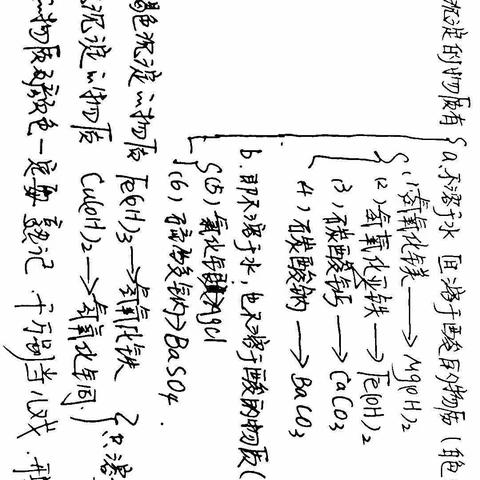 沉淀的物质有 { a.不溶于水 但溶于酸的物质(白色
(1)氢氧化镁 → Mg(OH)2
(2)氢氧化亚铁 → Fe(OH)2
(3)碳酸钙 → CaCO3
(4)碳酸 → BaCO3
b.即不溶于水,也不溶于酸的物质(
(5)氯化 AgCl
(6) → BaSO4
褐色沉淀的物质 Fe(OH)3 → 氢氧化铁
沉淀的物质 Cu(OH)2 → 氢氧化铜. {只溶
物质的颜色一定要 记 千万别当儿戏,